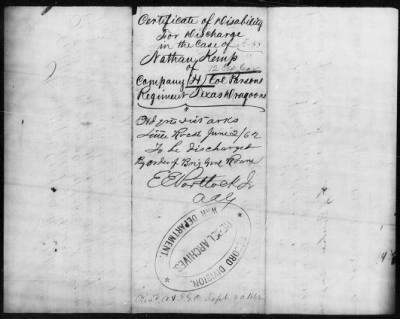 Certificate of Disability
For Discharge
in the Case of
Nathan Kemp
of
Company (H) Col Parsons
Regiment Texas Dragoons
Hd Qrs Dist Arks
Little Rock June 2/62
To be discharged
By order of Brig Genl
E E Portlock Jr
AAG
RECORD DIVISION.
REBEL ARCHIVES
WAR DEPARTMENT.